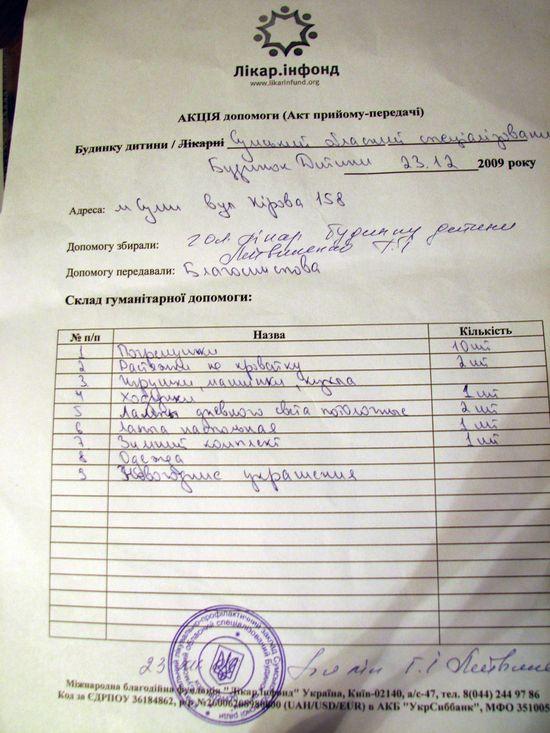 Лікар.інфонд
www.likarinfund.org
АКЦІЯ допомоги (Акт прийому-передачі)
Будинку дитини / Лікарні Сумський обласний спеціалізовани
Будинок Дитини 23.12 2009 року
Адреса: м Суми вул Кірова 158
Допомогу збирали: гол лікар будинку дитини
Литвиненко Г.І
Допомогу передавали: Благосмислова
Склад гуманітарної допомоги:
№ п/п Назва Кількість
1 Погремушки 10 шт
2 на кроватку 2 шт
3 Игрушки, машинки, кукла
4 1 шт
5 Лампы дневного света потолочные 2 шт
6 Лампа настольная 1 шт
7 Зимний комплект 1 шт
8 Одежда
9 Новогодние украшения
23 Г.І
Міжнародна благодійна фундація "Лікар.Інфонд" Україна, Київ-02140, а/с-47, тел. 8(044) 244 97 86
Код за ЄДРПОУ 36184862, р/р №26006208980800 (UAH/USD/EUR) в АКБ "УкрСиббанк", МФО 351005